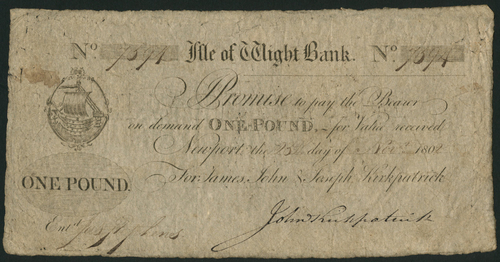 No. 7894 Isle of Wight Bank. No. 7894
I Promise to pay the Bearer
on demand ONE POUND, for Value received
Newport the day of Novr. 1804
ONE POUND.
For James, John & Joseph Kirkpatrick
Entd.
John Kirkpatrick